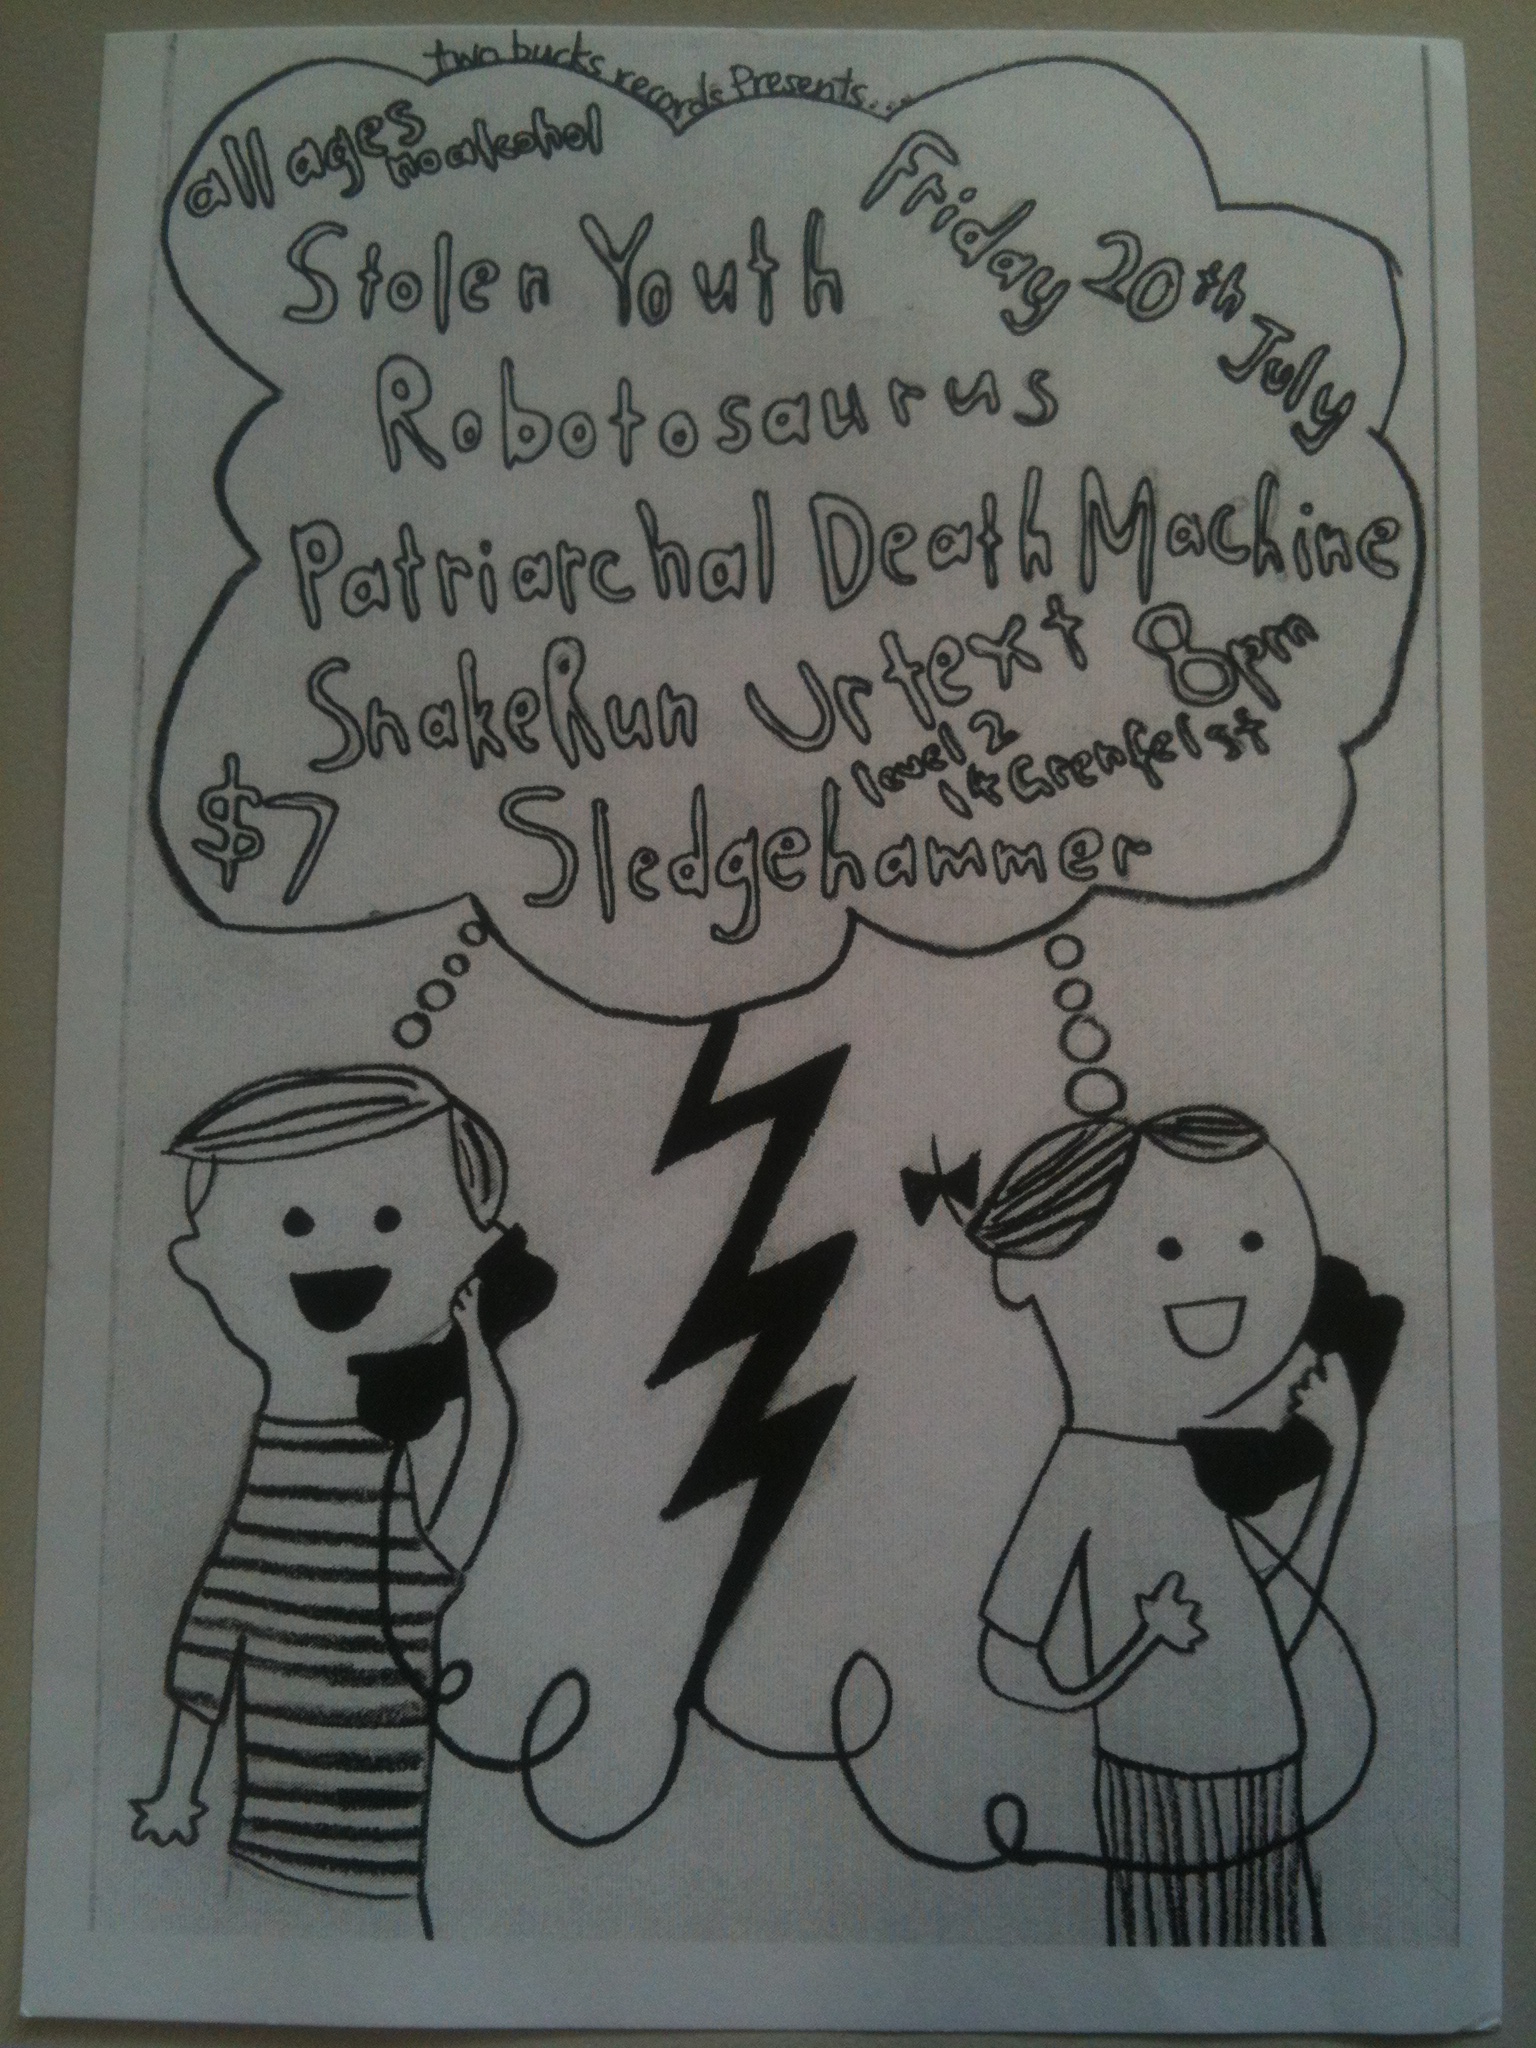 two bucks records Presents...
all ages
no alcohol
Friday 20th July
Stolen Youth
Robotosaurus
Patriarchal Death Machine
SnakeRun
Urtext 8pm
level 2
14 Grenfel st
$7
Sledgehammer